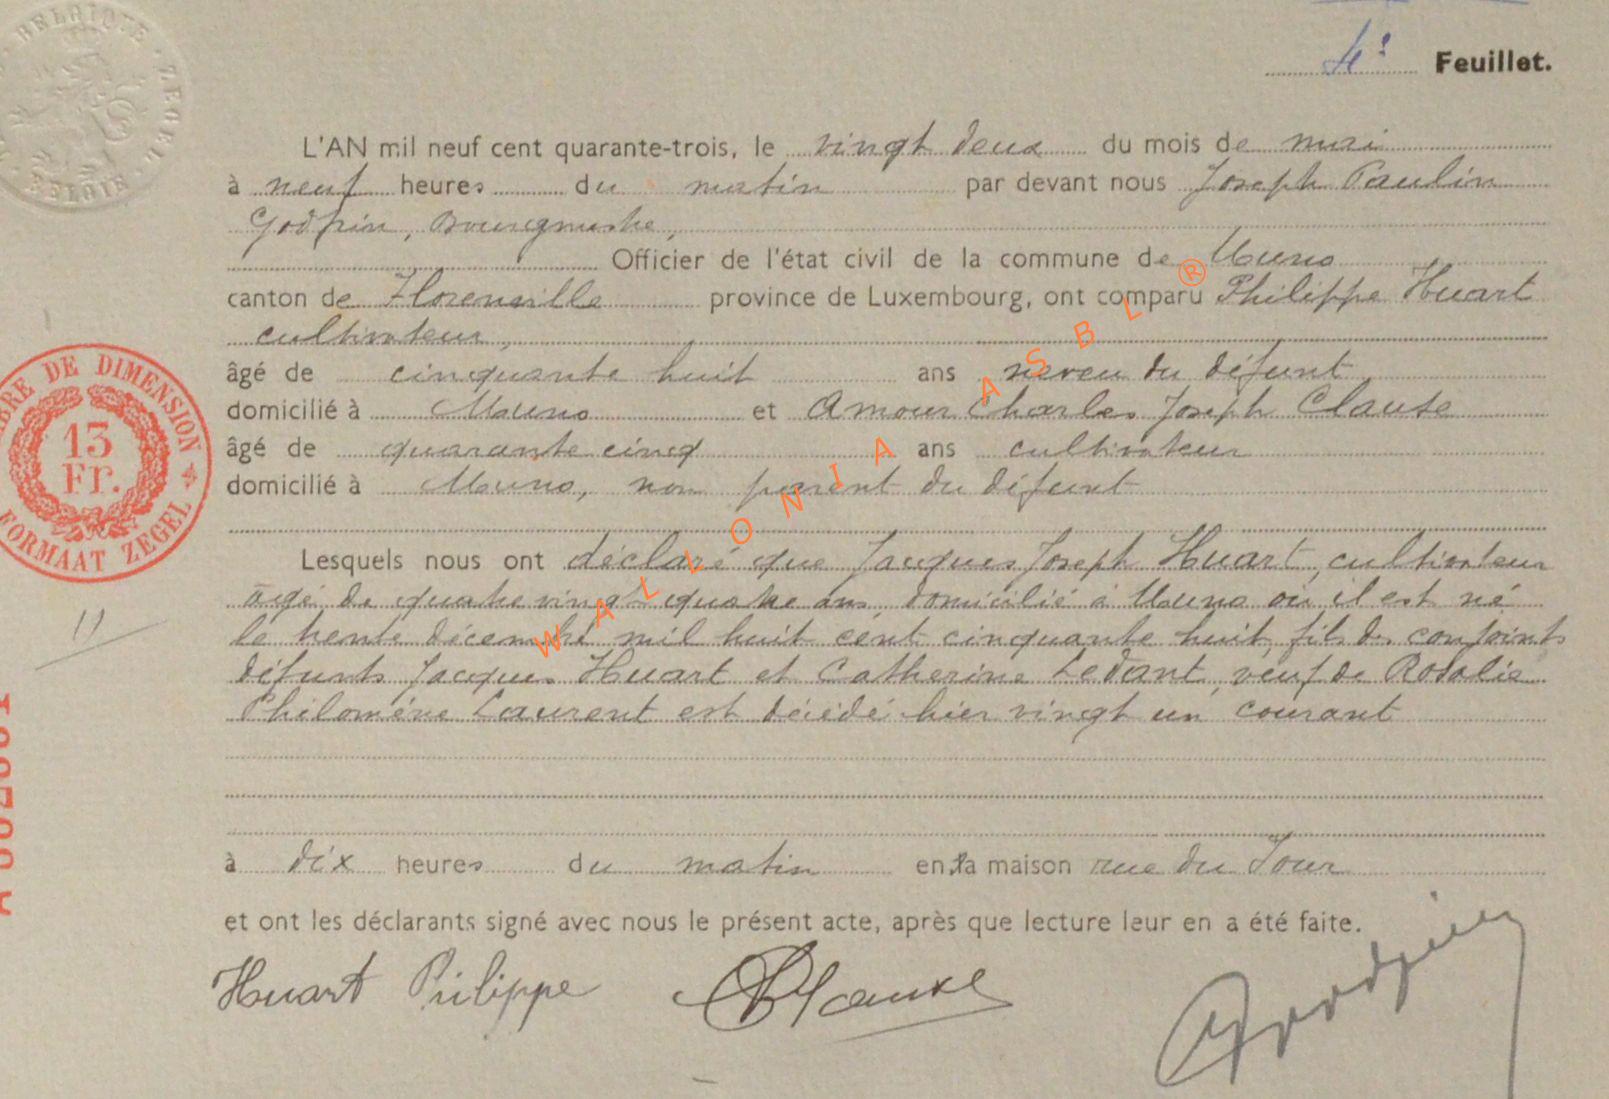 BELGIQUE ZEGEL BELGIE
4e Feuillet.
L'AN mil neuf cent quarante-trois, le vingt deux du mois de mai
à neuf heures du matin par devant nous Joseph Paulin
Godfrin, Bourgmestre,
Officier de l'état civil de la commune de Muno
canton de Florenville province de Luxembourg, ont comparu Philippe Huart
cultivateur,
âgé de cinquante huit ans neveu du défunt
domicilié à Muno et Amour Charles Joseph Clause
âgé de quarante cinq ans cultivateur
domicilié à Muno, non parent du défunt
Lesquels nous ont déclaré que Jacques Joseph Huart, cultivateur
âgé de quatre vingt quatre ans, domicilié à Muno où il est né
le trente décembre mil huit cent cinquante huit, fils des conjoints
défunts Jacques Huart et Catherine Ledant, veuf de Rosalie
Philomène Laurent est décédé hier vingt un courant
à dix heures du matin en la maison rue du Four
et ont les déclarants signé avec nous le présent acte, après que lecture leur en a été faite.
Huart Philippe Clause Godfrin
TIMBRE DE DIMENSION
13
Fr.
FORMAAT ZEGEL
11
WALLONIA ASBL ®